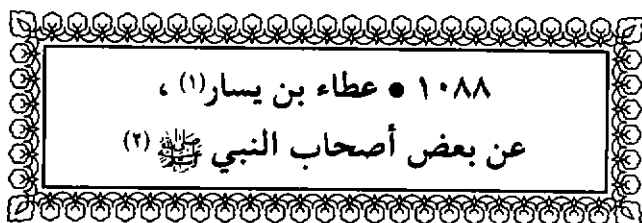 ١٠٨٨ • عطاء بن يسار(١) ،
عن بعض أصحاب النبي ﷺ (٢)